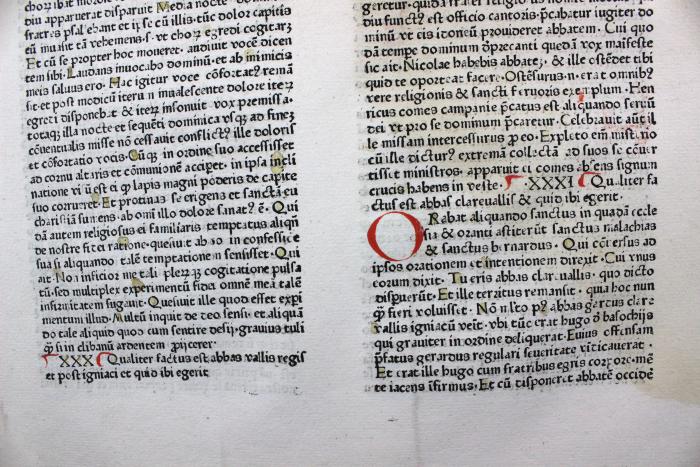 diu apparuerat disparuit Media nocte dum
fratres psalebant et ipse cū illis: tūc dolor capitis
eū inuasit tā vehemens. s. vt chorū egredi cogitaret
Et cū se propter hoc moueret. audiuit vocē dicen
tem sibi. Laudans inuocabo dominū. et ab inimicis
meis saluus ero. Hac igitur voce cōfortat⁹ remā
sit. et post modicū iterū inualescente dolore iterū
egredi disponebat & iterū insonuit vox premissa.
totaq; illa nocte et sequēti dominica vsq; ad finē
cōuentualis misse nō cessauit conflict⁹ ille doloris
et cōfortatio vocis. Cūq; in ordine suo accessisset
ad cornu altaris et comunionē acciperet. in ipsa incli
natione visū est ei qp lapis magni pōderis de capite
suo corrueret. Et protinus se erigens et sanctā eu
charistiā sumens. ab omi illo dolore sanat⁹ ē. Qui
dā autem religiosus ei familiaris temptatus aliqn̄
de nostre fidei ratione. quesiuit ab eo in confessiōe
sua si aliquando talē temptationem sensisset. Qui
ait. Non inficior me tali pleruq; cogitatione pulsa
tū. sed multiplex experimentū fidei omnē mea talē
infirmitatem fugauit. Quesiuit ille quod esset expi
mentum illud. Multū inquit de teo sensi. et aliquā
do tale aliquid quoc cum sentire desij. grauius tuli
q̄ si in clibanū ardentem p̄ijcerer.
XXX Qualiter factus est abbas vallis regis
et post igniaci et quid ibi egerit
diu funct⁹ est officio cantoris. p̄cabatur iugiter do
minū vt eis idoneū prouideret abbatem. Cui quo
dā tempe dominum dp̄recanti quedā vox māifeste
sic ait. Nicolae habebis abbatē. & ille ostēdet tibi
quid te oporteat facere. Ostēsurus n. erat omnib⁹
vere religionis & sancti feruoris exemplum. Hen
ricus comes campanie p̄catus est aliquando seruū
dei vt pro se dominum p̄caretur. Celebrauit aūt il
le missam intercessurus p̄ eo. Expleto eīn misterio
cū iste dictur⁹ extremā collectā ad suos se cōuer
tisset ministros. apparuit ei comes absens signum
crucis habens in veste. XXXI Qualiter fa
ctus est abbas clareuallis & quid ibi egerit.
ORabat aliquando sanctus in quadā eccle
sia & oranti astiterūt sanctus malachias
& sanctus bernardus. Qui cōuersus ad
ipsos orationem et intentionem direxit. Cui vnus
eorum dixit. Tu eris abbas clareuallis. quo dicto
disparuerūt. Et ille territus remansit. quia hoc nun
q̄ fieri voluisset. Nō mlto p⁹ abbas gerardus clare
vallis igniacū venit. vbi tūc erat hugo ð basochijs
qui grauiter in ordine deliquerat. Euius offensam
p̄fatus gerardus regulari seueritate vīdicauerat.
Et erat ille hugo cum fratribus egris corpore. mē
te iacens īfirmus. Et cū disponeret abbatē occide